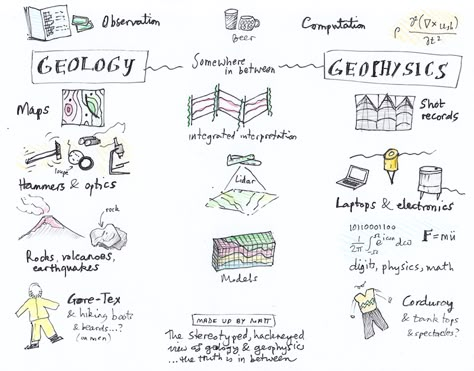 Observation
Beer
Computation
GEOLOGY
Somewhere
in between
GEOPHYSICS
Maps
Integrated interpretation
Shot
records
loupe
Hammers & optics
Lidar
Laptops & electronics
rock
Rocks, volcanoes,
earthquakes
Models
10110001100
F=mü
digits, physics, math
Gore-Tex
& hiking boots
& beards...?
(on men)
MADE UP BY MATT
The stereotyped, hackneyed
view of geology & geophysics
...the truth is in between
Corduroy
& tank tops
& spectacles?